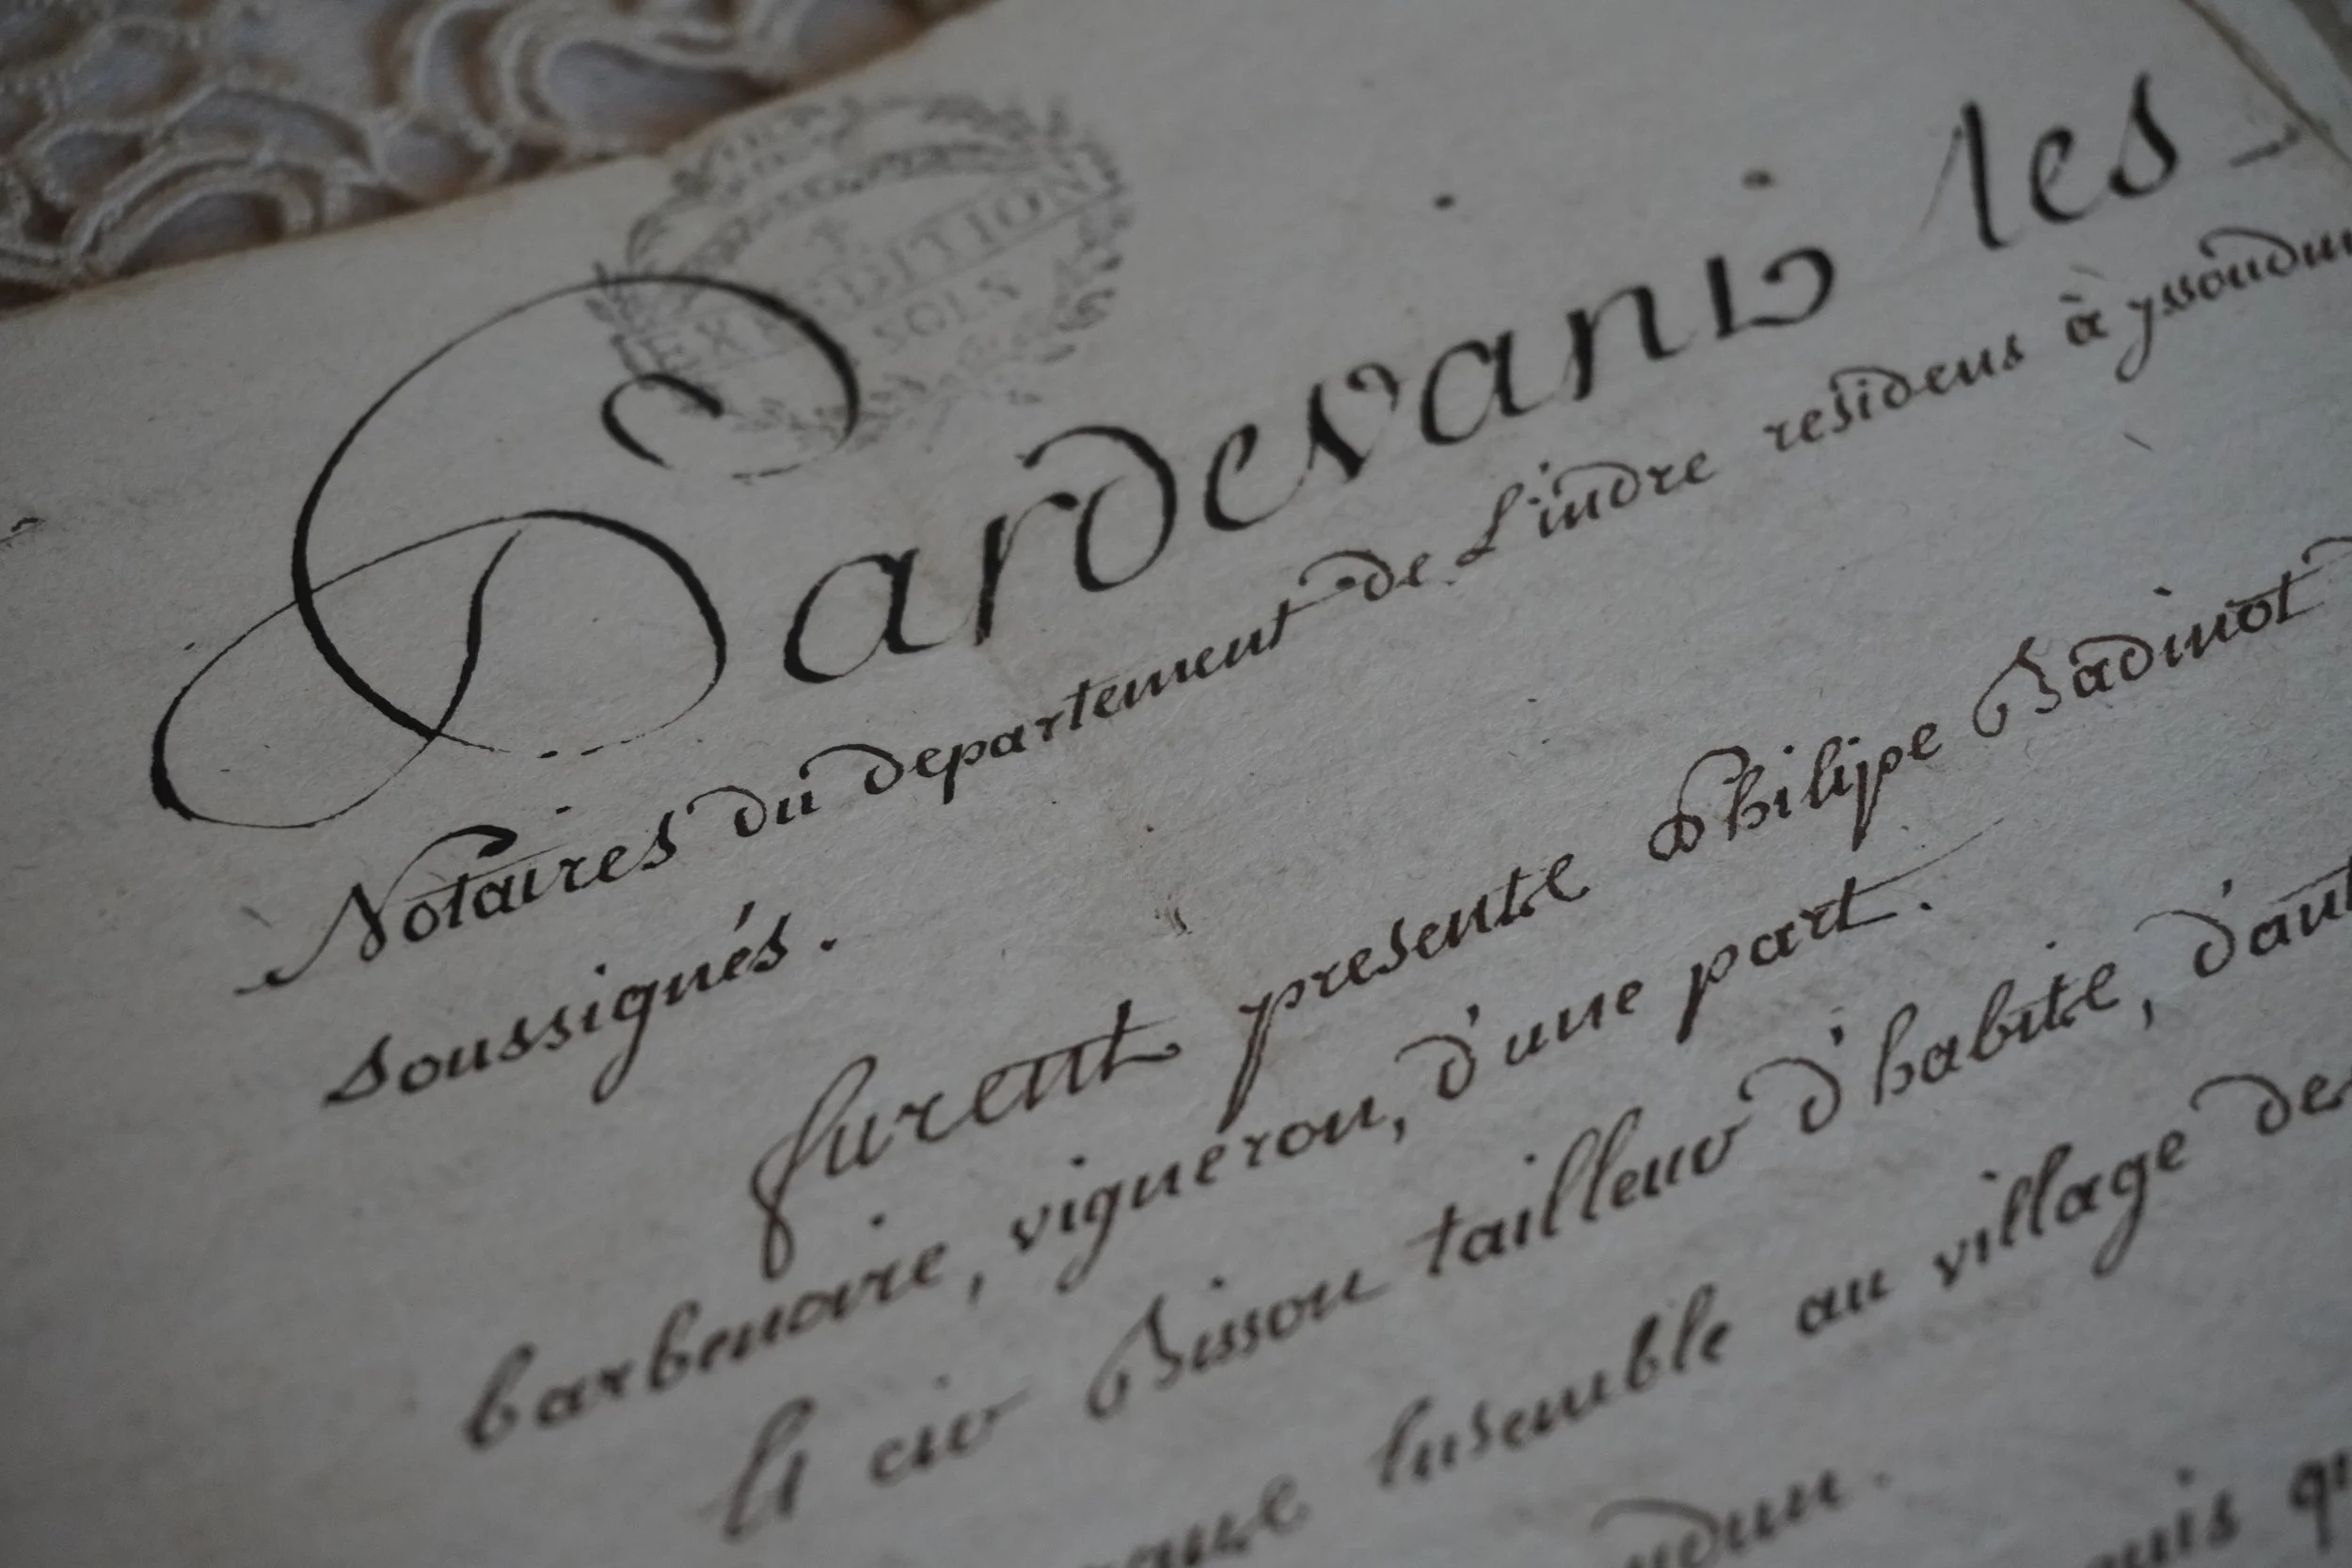 EXPEDITION
SOLS
Pardevant les
Notaires du departement de L'indre residens à yssoudun
soussignés.
furent presente Philippe Badinot
barbenoire, vigneron, d'une part.
Et eur Bisson tailleur d'habite, d'aut
Ensemble au village des
udun.
puis qu